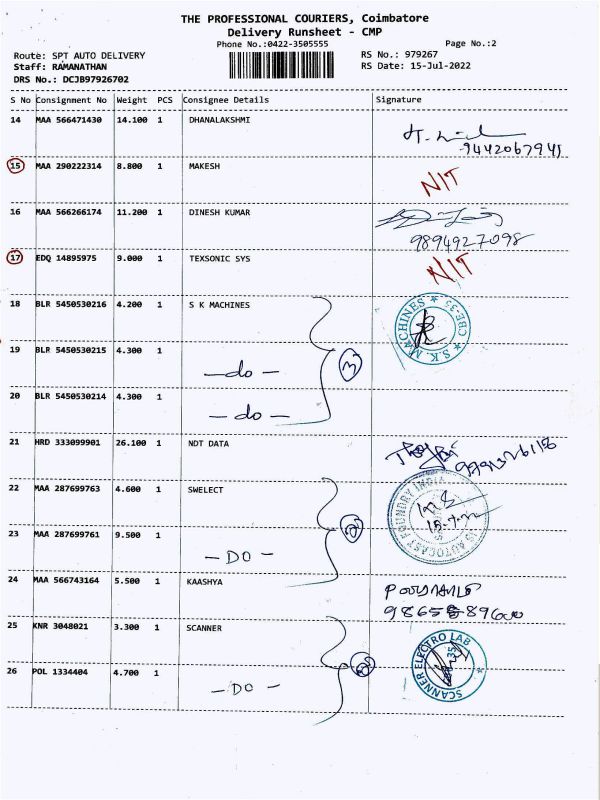 THE PROFESSIONAL COURIERS, Coimbatore
Delivery Runsheet - CMP
Phone No.:0422-3505555
Page No.:2
Route: SPT AUTO DELIVERY
RS No.: 979267
Staff: RAMANATHAN
RS Date: 15-Jul-2022
DRS No.: DCJB97926702
S No Consignment No Weight PCS Consignee Details Signature
14 MAA 566471430 14.100 1 DHANALAKSHMI
9442067941
15 MAA 290222314 8.800 1 MAKESH
NIT
16 MAA 566266174 11.200 1 DINESH KUMAR
9894927098
17 EDQ 14895975 9.000 1 TEXSONIC SYS
NIT
18 BLR 5450530216 4.200 1 S K MACHINES
S.K. MACHINES * CBE-35 *
19 BLR 5450530215 4.300 1 -do- 3
20 BLR 5450530214 4.300 1 -do-
21 HRD 333099901 26.100 1 NDT DATA
22 MAA 287699763 4.600 1 SWELECT
AUTOCAST FOUNDRY INDIA
23 MAA 287699761 9.500 1 -DO- 2
24 MAA 566743164 5.500 1 KAASHYA
25 KNR 3048021 3.300 1 SCANNER
SCANNER ELECTRO LAB *
26 POL 1334404 4.700 1 -DO- 2